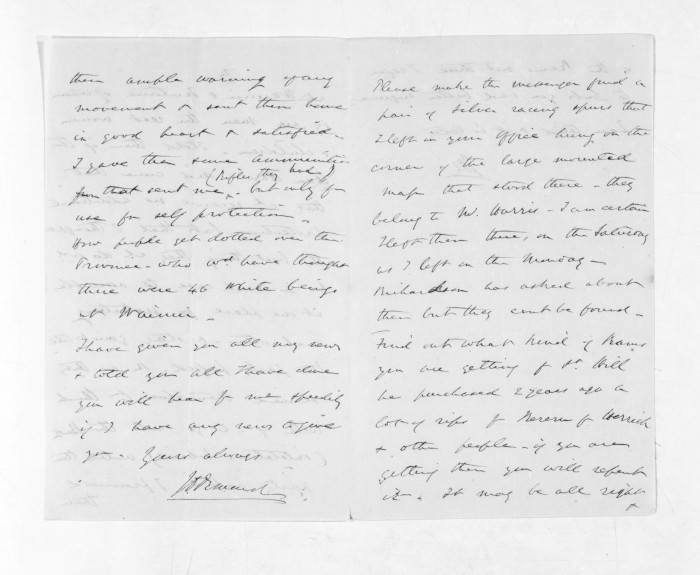 them ample warning of any
movement & sent them home
in good heart & satisfied -
I gave them some ammunition
for Rifles they had
that sent me, but only for
use for self protection -
How people get dotted over the
Province - who wd have thought
there were 46 white beings
at Wairoa -
I have given you all my news
& told you all I have done
you will hear fr me speedily
if I have any news to give
you - Yours always
Please make the messenger find a
pair of silver racing spurs that
I left in your office hung on the
corner of the large mounted
map that stood there - they
belong to W. Harris - I am certain
I left them there, on the Saturday
as I left on the Monday -
Richardson has asked about
them but they cant be found -
Find out what kind of Rams
you are getting fr St. Hill
he purchased 2 years ago a
lot of rips fr Merrick
& other people - if you are
getting them you will repent
it - It may be all right
&